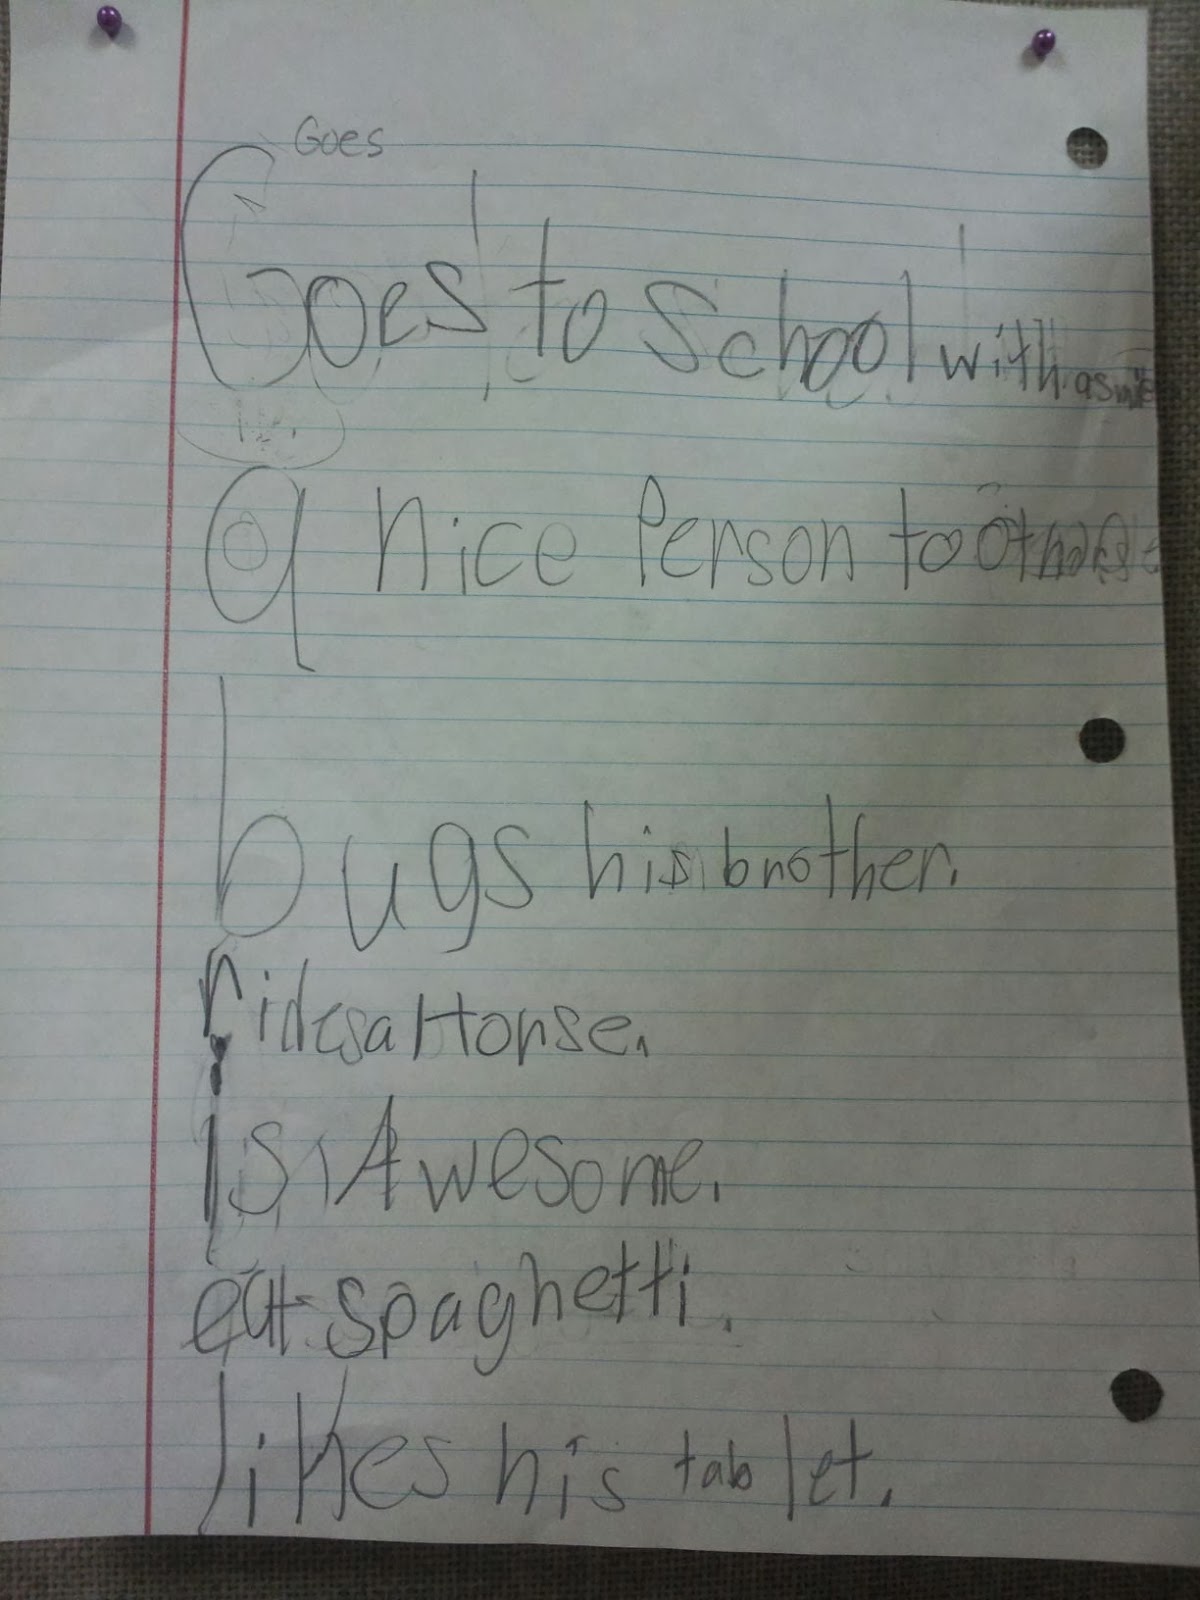 Goes
Goes to School with a smile
a nice Person to Others
bugs his brother.
rides a Horse.
is Awesome.
eat spaghetti.
likes his tablet.